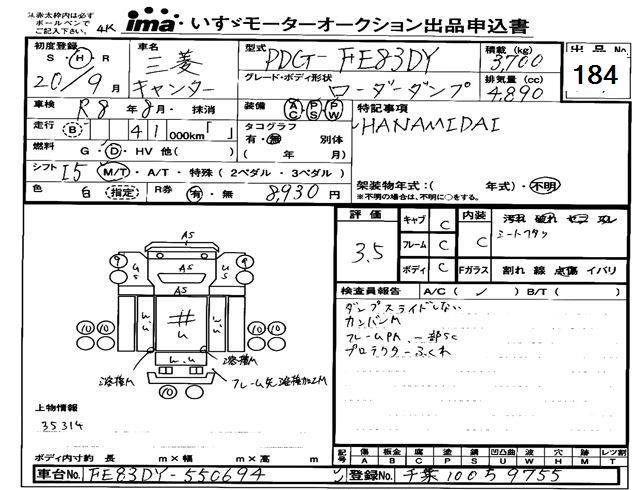 ※赤太枠内は必ず ボールペンで ご記入下さい
4K ima いすゞモーターオークション出品申込書
初度登録 S・H・R 20/9月
車名 三菱 キャンター
型式 PDG-FE83DY
グレード・ボディ形状 ローダーダンプ
積載(kg) 3,700
排気量(cc) 4,890
出品No. 184
車検 R8年8月・抹消
装備 AC PS PW
特記事項
HANAMIDAI
走行 B 41,000km「 」
タコグラフ 有・無 別体 ( 年 月)
燃料 G・D・HV 他( )
シフト I5 M/T・A/T・特殊(2ペダル・3ペダル)
架装物年式:( 年式)・不明
※不明の場合は、不明に○をする。
色 白 指定 R券 有・無 8,930円
評価 3.5
キャブ C
フレーム C
ボディ C
内装 C
汚れ 破れ セコ スレ
シートフタツ
Fガラス 割れ 線 点傷 イバリ
検査員報告 A/C( ／ ) B/T( )
ダンプスライドしない
カンバンM
フレームPM、一部SC
プロテクターふくれ
AS
AS
AS
9 9
10 10 10 10
U S
U U
W.U
溶接M
溶接M
フレーム先溶接加工M
上物情報
35314
ボディ内寸約 長 m×幅 m×高 m
記号 傷 A 板金 B 腐 C 塗 P 錆 S 凹凸曲 U 波 W 穴 H 跡 M レンズ割 T
車台No. FE83DY-550694
登録No. 千葉100 ち 9755